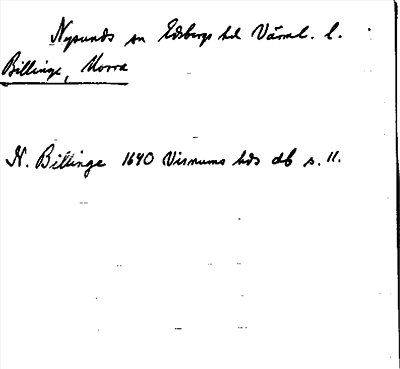 Nysunds sn Edsbergs hd Värml. l.
Billinge, Norra
N. Billinge 1640 Visnums hds db s. 11.